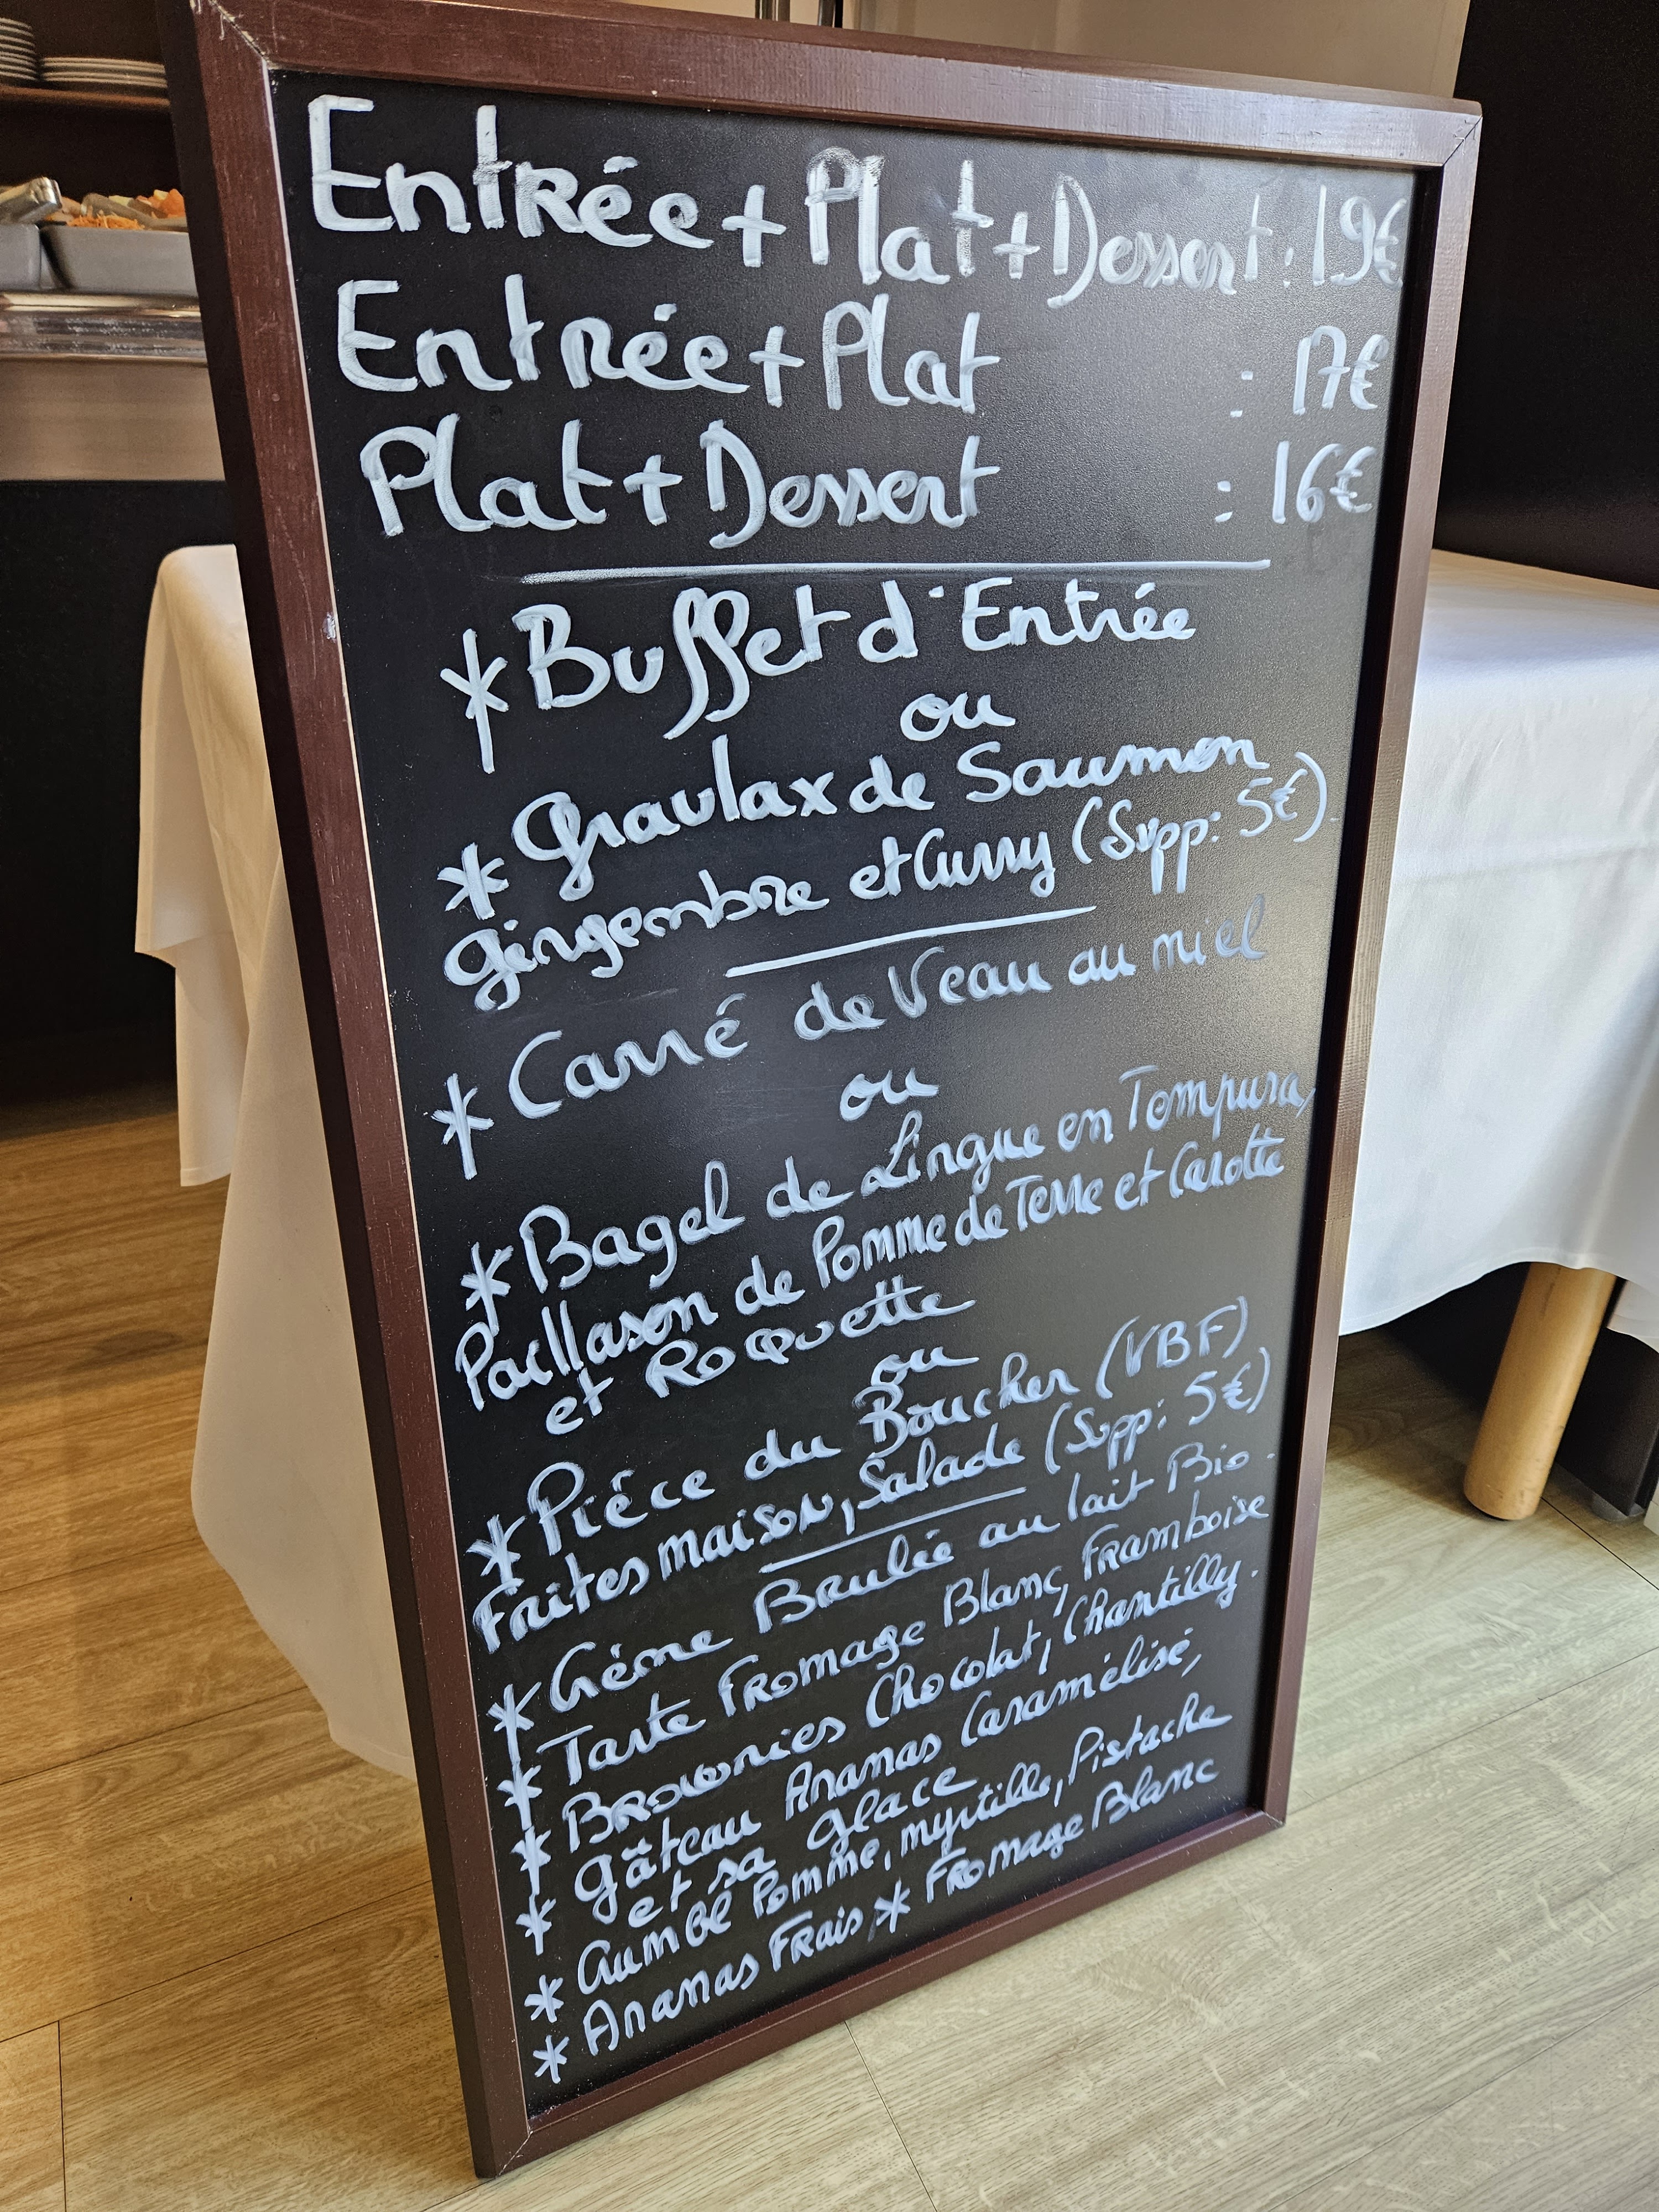 Entrée + Plat + Dessert : 19€
Entrée + Plat : 17€
Plat + Dessert : 16€
* Buffet d'Entrée
ou
* Gravlax de Saumon
gingembre et Curry (Supp: 5€).
* Carré de Veau au miel
ou
* Bagel de Lingue en Tempura,
Paillasson de Pomme de Terre et Carotte
et Roquette
ou
* Pièce du Boucher (VBF)
Frites maison, Salade (Supp: 5€)
* Crème Brulée au lait Bio.
* Tarte Fromage Blanc, Framboise
* Brownies Chocolat, Chantilly.
* Gâteau Ananas Caramélisé,
et sa glace
* Crumble Pomme, myrtille, Pistache
* Ananas Frais * Fromage Blanc